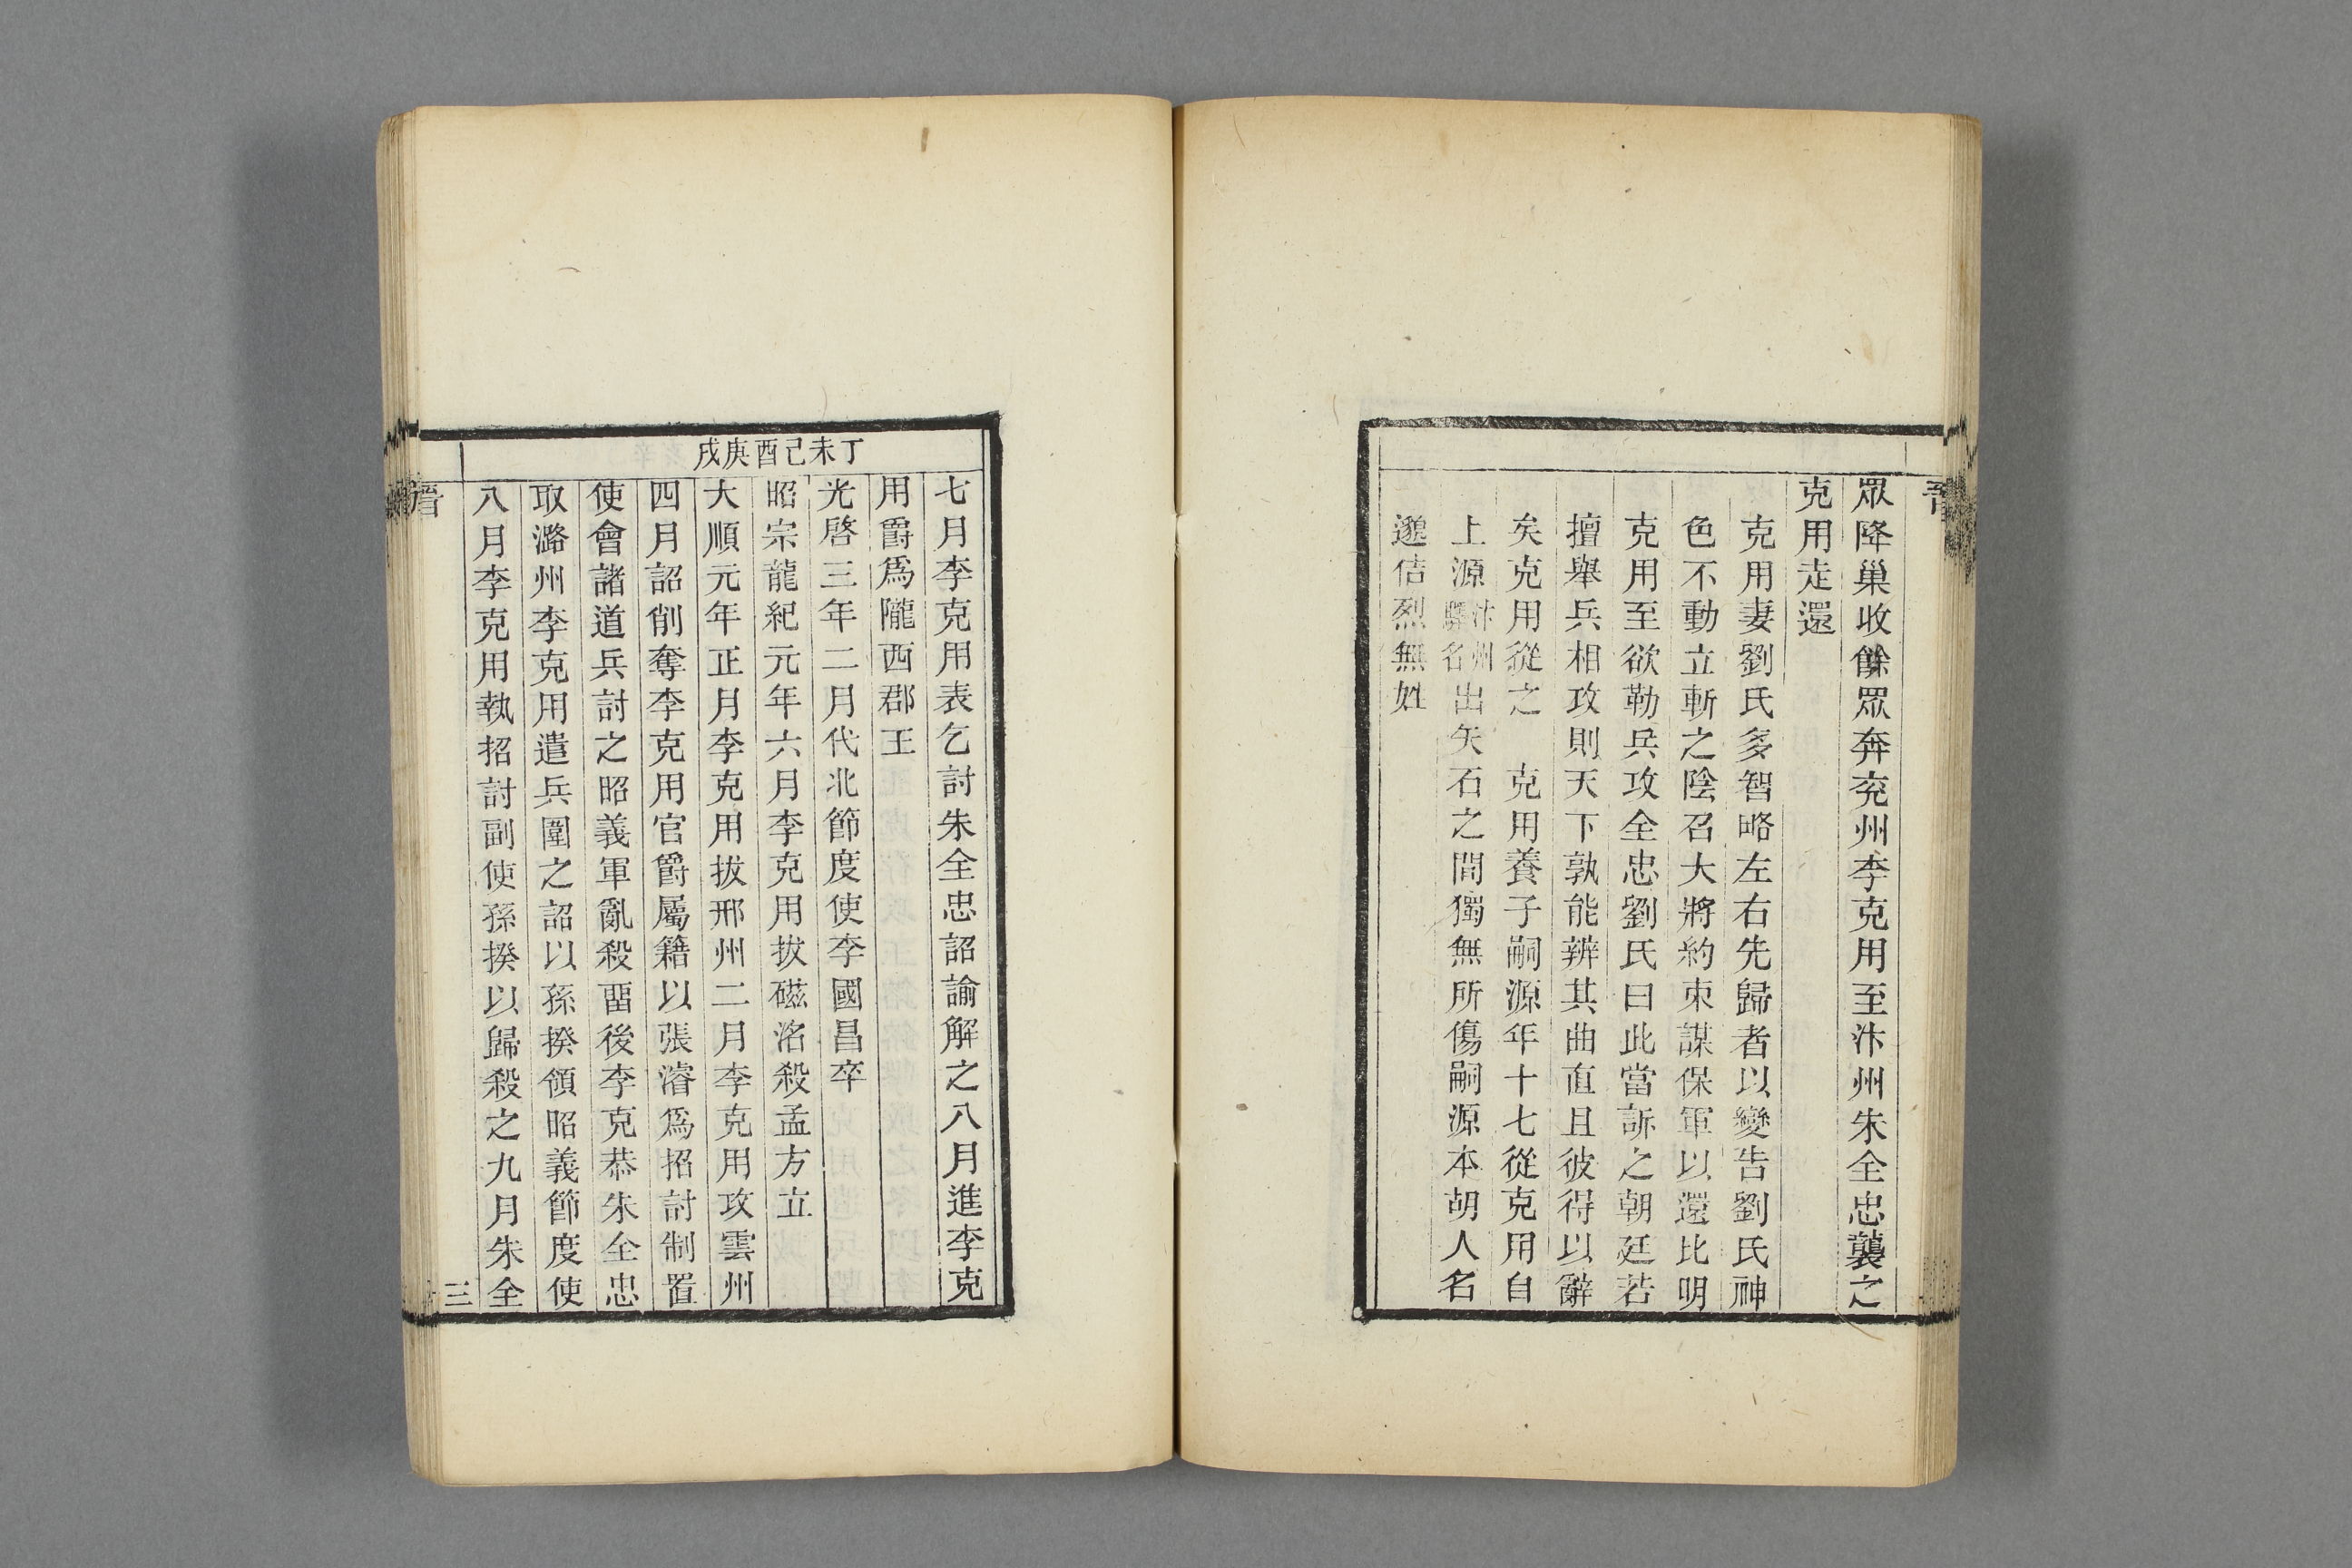 眾降巢收餘眾奔兖州李克用至汴州朱全忠襲之
克用走還
克用妻劉氏多智略左右先歸者以變告劉氏神
色不動立斬之陰召大將約束謀保軍以還比明
克用至欲勒兵攻全忠劉氏曰此當訴之朝廷若
擅舉兵相攻則天下孰能辨其曲直且彼得以辭
矣克用從之　克用養子嗣源年十七從克用自
上源汴州驛名出矢石之間獨無所傷嗣源本胡人名
邈佶烈無姓
丁未己酉庚戌
七月李克用表乞討朱全忠詔諭解之八月進李克
用爵爲隴西郡王
光啓三年二月代北節度使李國昌卒
昭宗龍紀元年六月李克用拔磁洺殺孟方立
大順元年正月李克用拔邢州二月李克用攻雲州
四月詔削奪李克用官爵屬籍以張濬爲招討制置
使會諸道兵討之昭義軍亂殺畱後李克恭朱全忠
取潞州李克用遣兵圍之詔以孫揆領昭義節度使
八月李克用執招討副使孫揆以歸殺之九月朱全
三